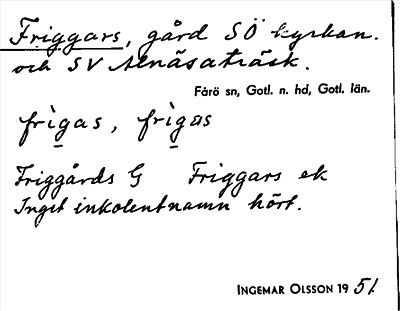 Friggars, gård SÖ kyrkan.
och SV Alnäsaträsk.
Fårö sn, Gotl. n. hd, Gotl. län.
frìgas, frìgas
Friggårds G Friggars ek
Inget inkolentnamn hört.
INGEMAR OLSSON 1951.